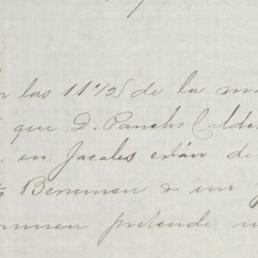 las 11 1/2 de la
que D. Pancho
en Jacales están de
Berumen & un
pretende